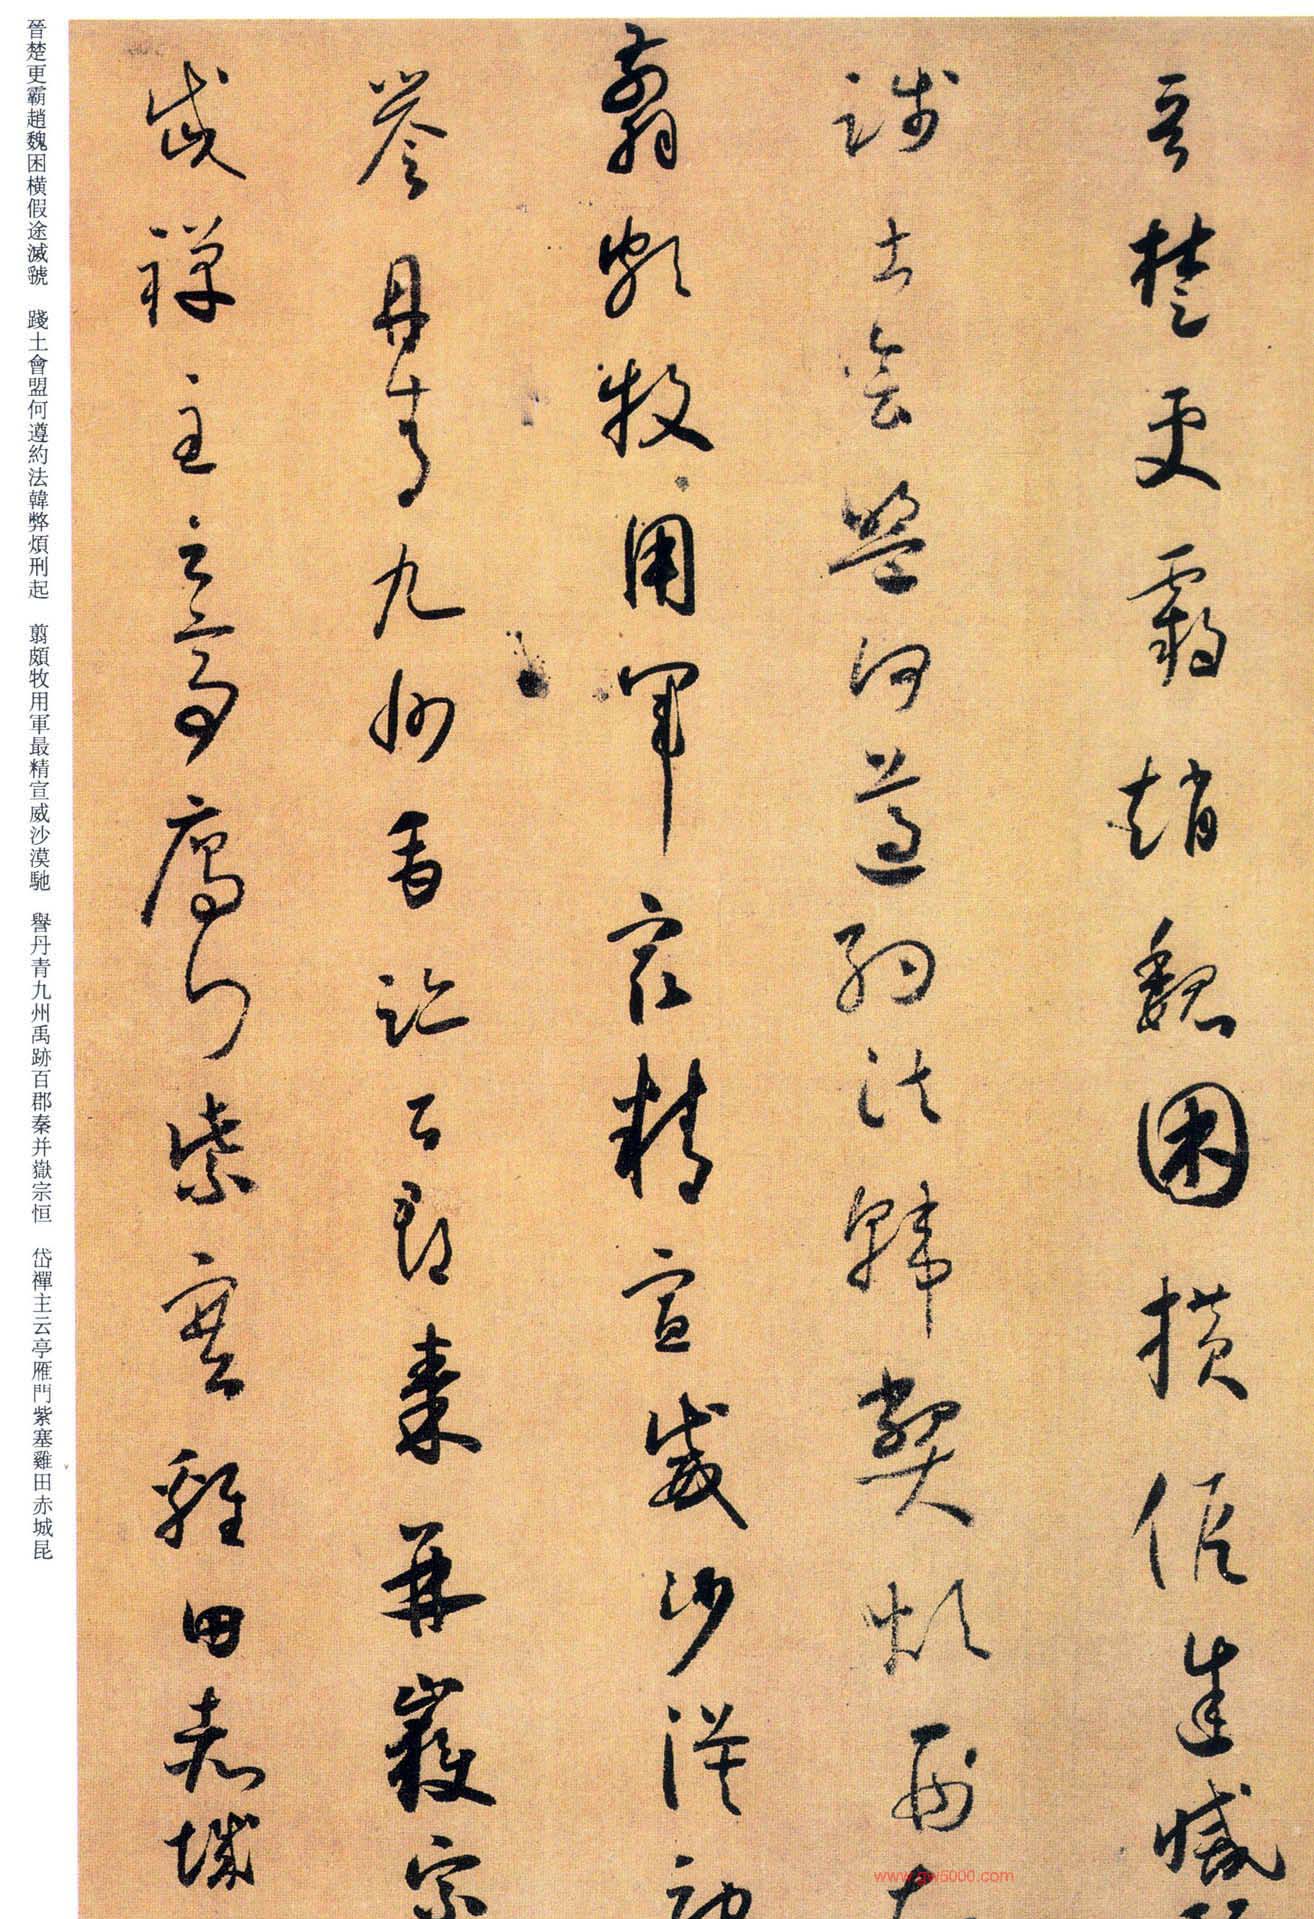 晉楚更霸趙魏困橫假途滅
踐土會盟何遵約法韓弊煩刑
翦頗牧用軍最精宣威沙漠馳
譽丹青九州禹跡百郡秦并嶽宗
岱禪主云亭雁門紫塞雞田赤城
晉楚更霸趙魏困橫假途滅虢 踐土會盟何遵約法韓弊煩刑起 翦頗牧用軍最精宣威沙漠馳 譽丹青九州禹跡百郡秦并嶽宗恒 岱禪主云亭雁門紫塞雞田赤城昆